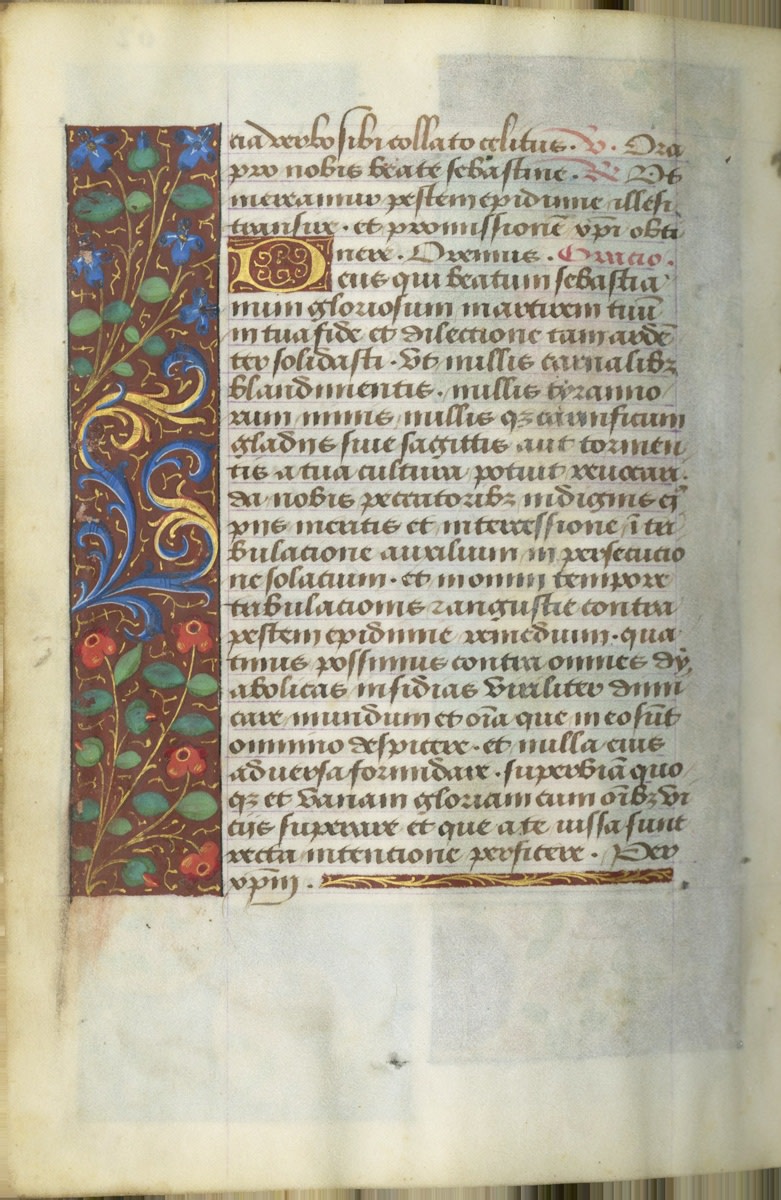 cia verbo sibi collato celitus. V. Ora
pro nobis beate sebastine. R. Ut
mereamur pestem epidimie illesi
transire. et promissionē xp̄i obti
nere. Oremus. Oracio.
Deus qui beatum sebastia
num gloriosum martirem tuū
in tua fide et dilectione tam ardē
ter solidasti. Ut nullis carnalibꝫ
blandimentis. nullis tyranno
rum minis nullis qꝫ carnificum
gladiis sive sagittis aut tormen
tis a tua cultura potuit revocari.
da nobis peccatoribꝫ indignis eꝰ
piis meritis et intercessione ī tri
bulatione auxilium in persecucio
ne solatium. et in omni tempore
tribulacionis ⁊ angustie contra
pestem epidimie remedium. qua
tinus possimus contra omnes dy
abolicas insidias viriliter dimi
care mundum et oīa que in eo sūt
omnino despicere. et nulla eius
adversa formidare. superbiā quo
qꝫ et vanam gloriam cum oībꝫ vi
ciis superare et que a te iussa sunt
recta intencione perficere. Per
xp̄m.